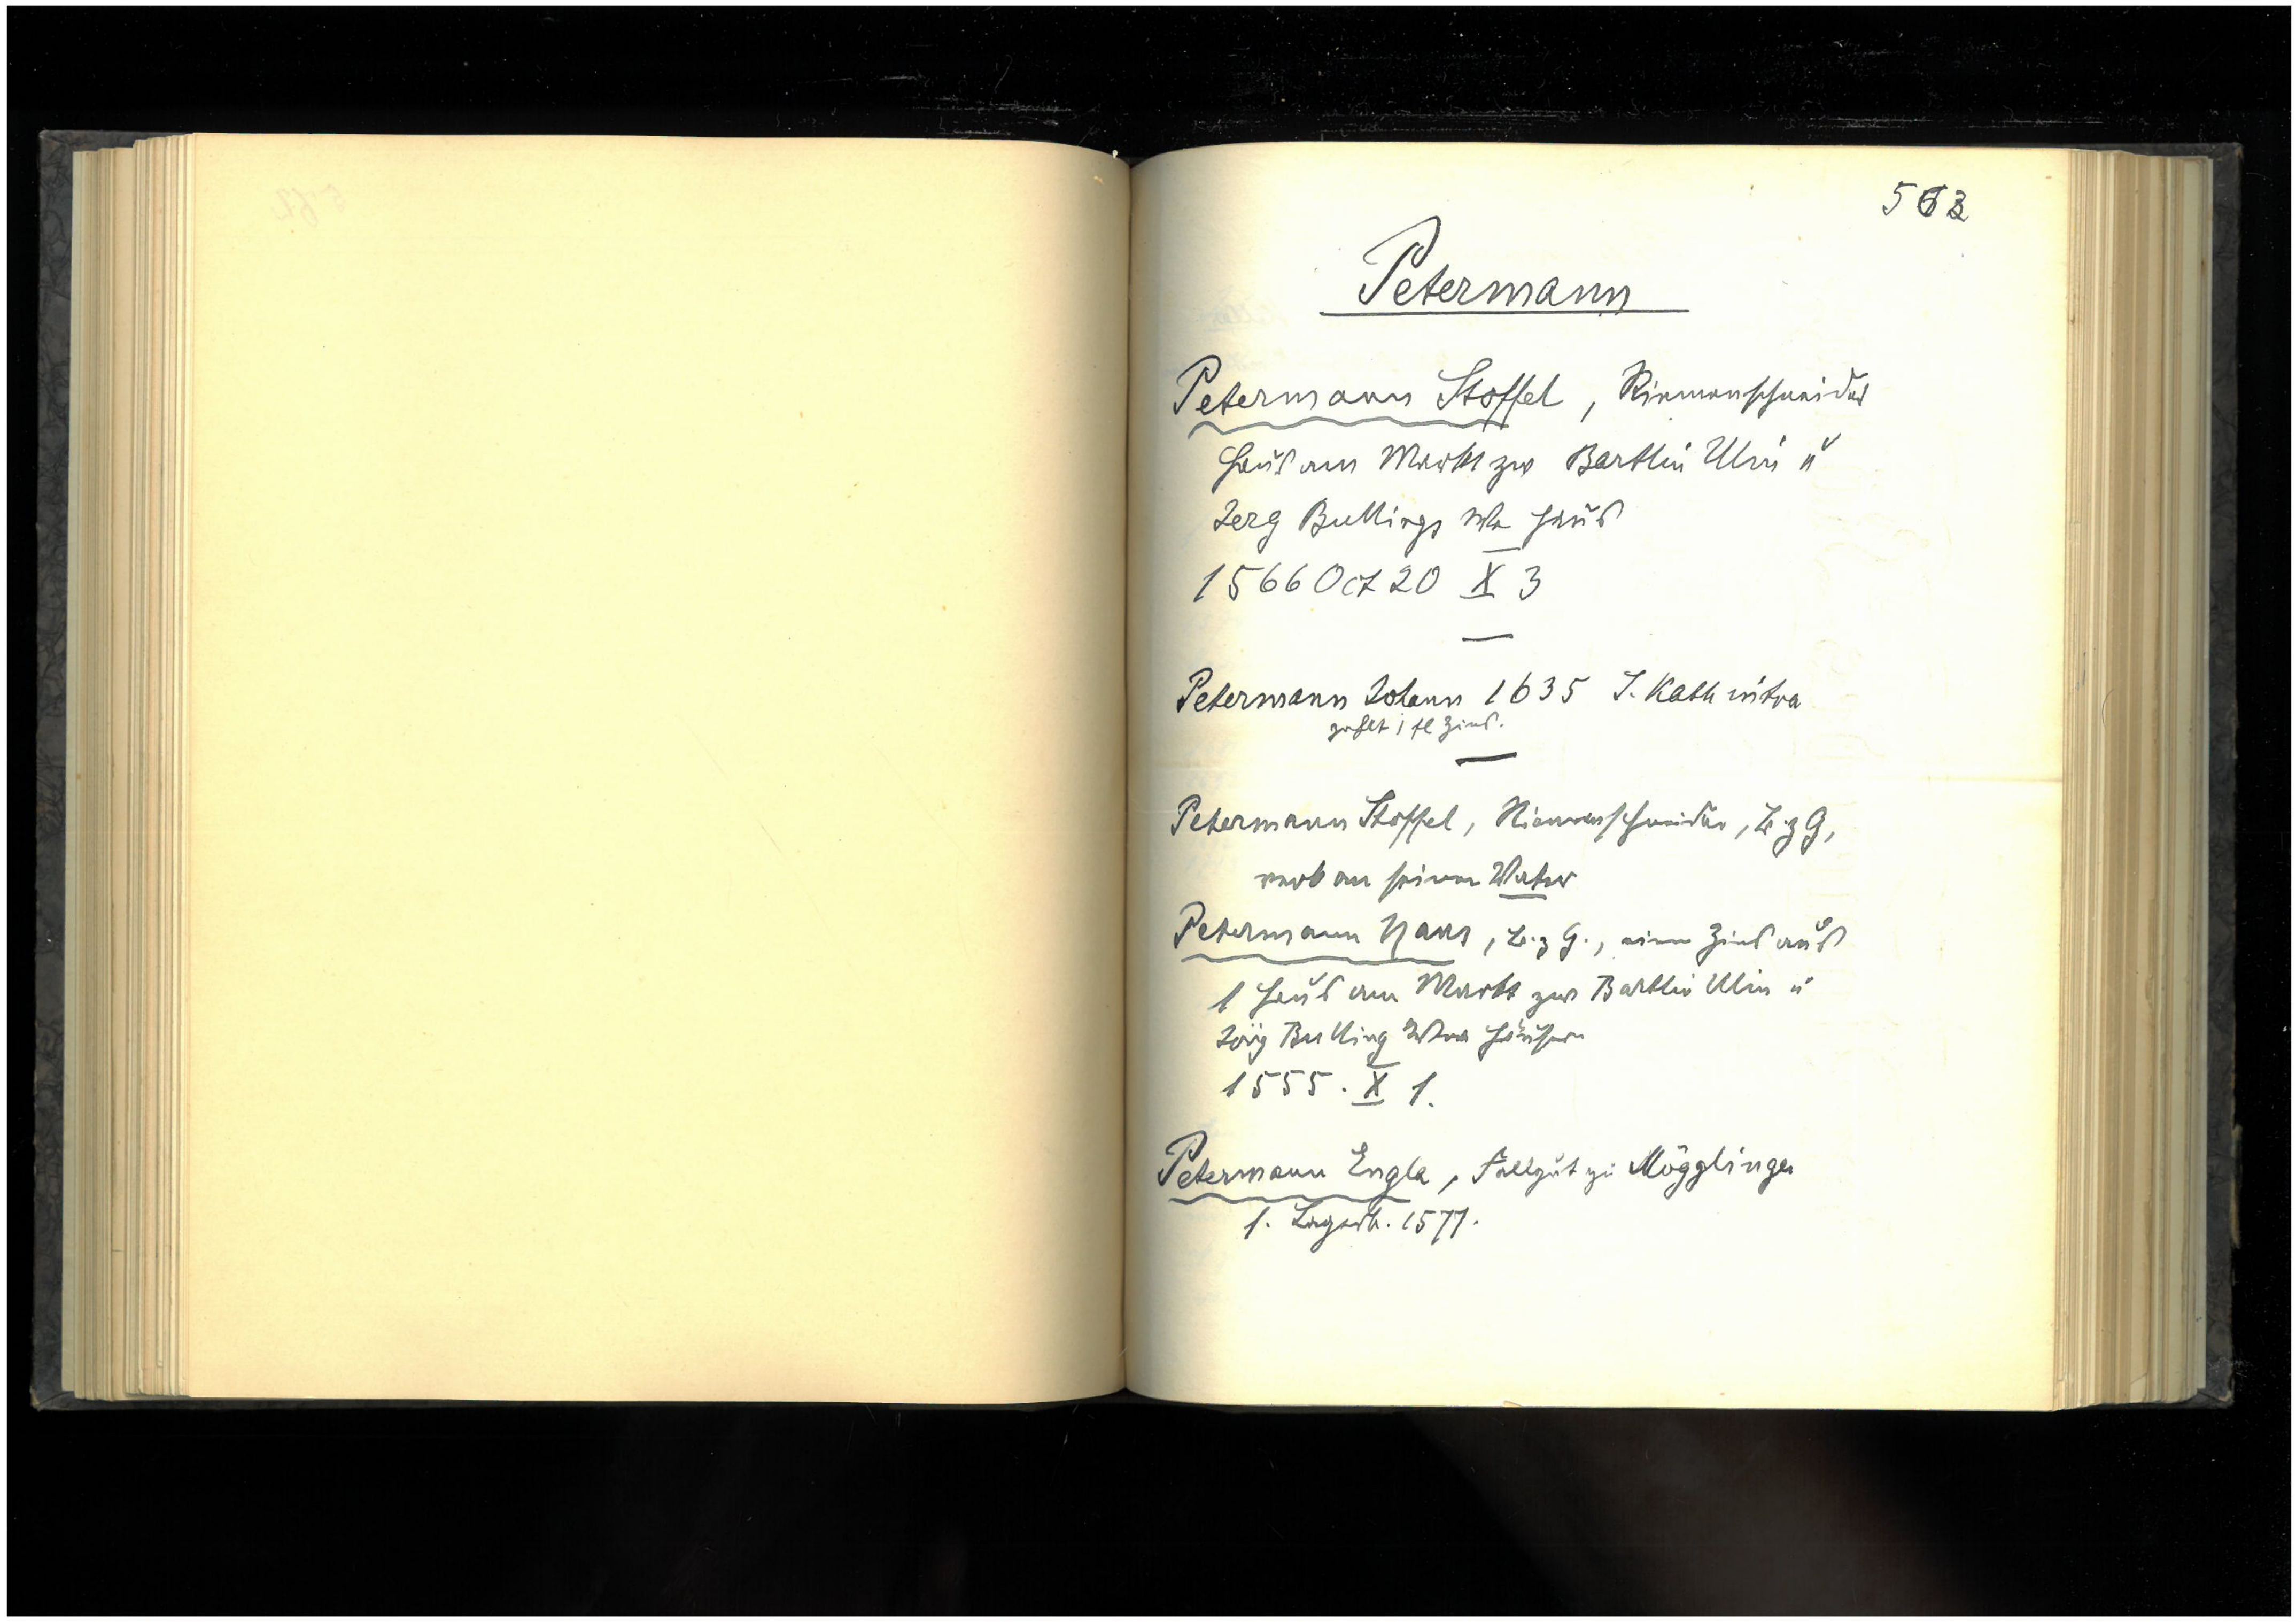 563
Petermann
Petermann Stoffel, Riemenschneider
Haus am Markt zw Bartlin Ulin u
Jerg Bullings We Haus
1566 Oct 20 X 3
—
Petermann Johann 1635 S. Kath intra
zahlt 1 fl Zins.
—
Petermann Stoffel, Riemenschneider, B. z G,
verk an seinen Vater
Petermann Hans, B. z G., einen Zins aus
1 Haus am Markt zw Bartlin Ulin u
Jörg Bulling Häusern
1555. X 1.
Petermann Engla, Fallgut zu Mögglingen
1. Lagerb. 1577.